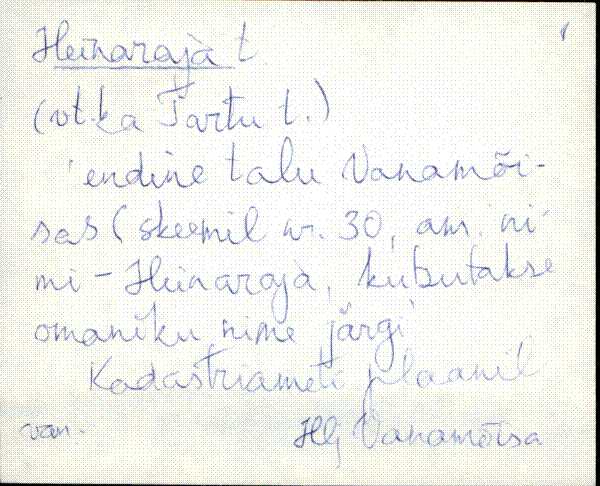 Heinaraja t.
(vt. ka Tartu t.)
endine talu Vanamõi-
sas (skeemil nr. 30, am. ni-
mi - Heinaraja, kutsutakse
omaniku nime järgi
Kadastriameti plaanil
van. Hlj Vanamõisa